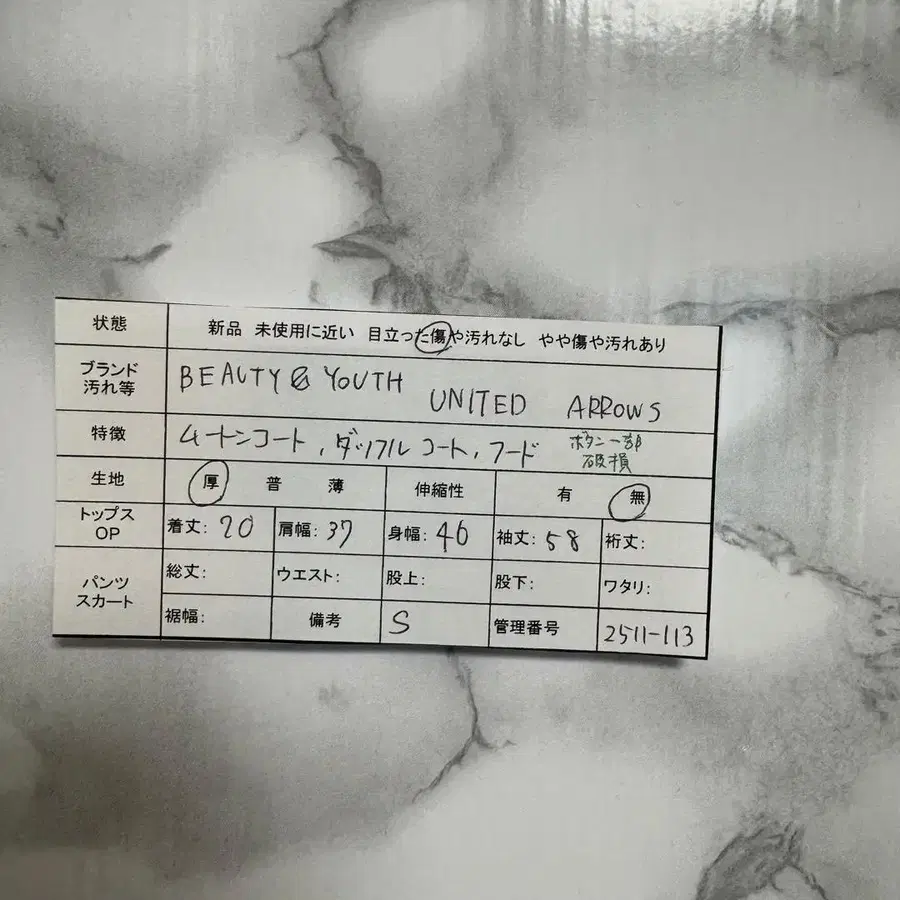 状態 新品 未使用に近い 目立った傷や汚れなし やや傷や汚れあり
ブランド
汚れ等
BEAUTY & YOUTH UNITED ARROWS
特徴 ムートンコート, ダッフルコート, フード
ボタン一部
破損
生地 厚 普 薄 伸縮性 有 無
トップス
OP
着丈: 70 肩幅: 37 身幅: 46 袖丈: 58 裄丈:
パンツ
スカート
総丈: ウエスト: 股上: 股下: ワタリ:
裾幅: 備考 S 管理番号 2511-113